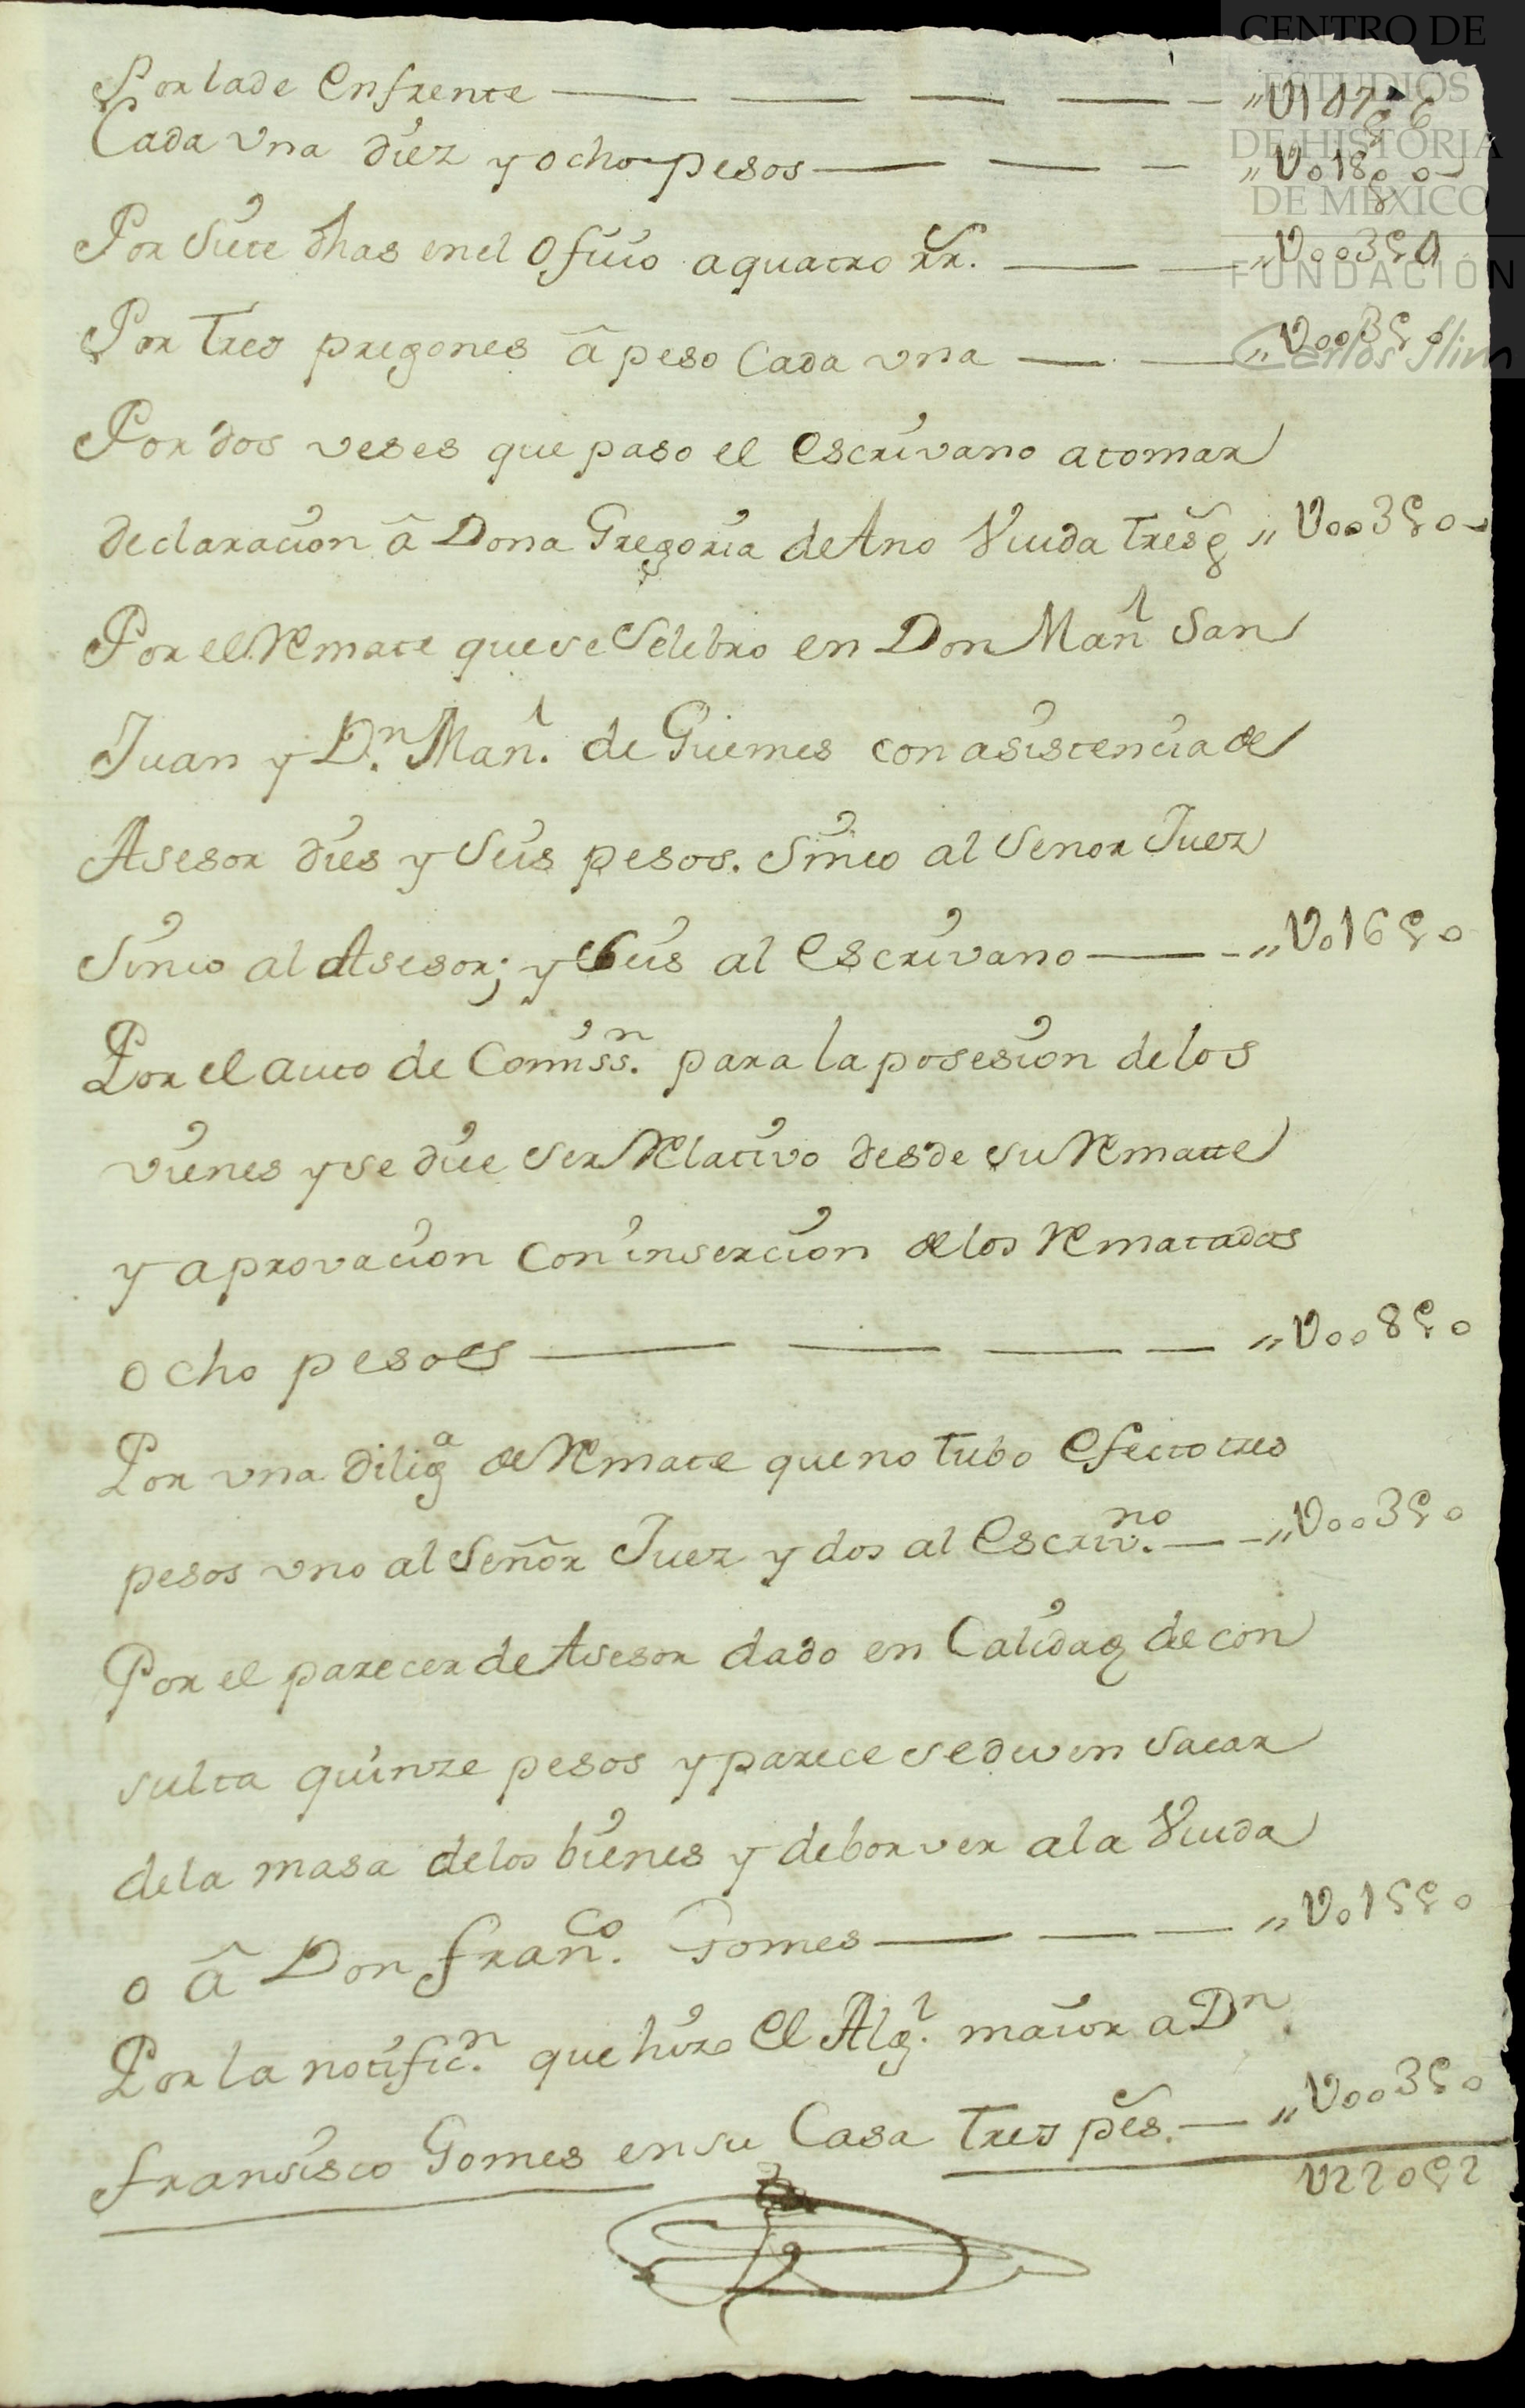 Por lade enfrente — — — — — „U147
Cada vna diez y ocho pesos — — — „Uo18 o
Por Siete dhas en el Ofisio a quatro rr.s — — „Uoo3ç4
Por Tres pregones â peso Cada vna — — „Uoo3ço
Por dos veses que paso el escrivano a tomar
declaracion â Dona Gregoria de Ano Viuda tres p.s „Uoo3ço
Por el Remate que se Selebro en Don Man.l San
Juan y D.n Man.l de Guemes con asistencia de
Asesor dies y Seis pesos. Sinco al Senor Juez
Sinco al Asesor; y Seis al escrivano — - „Uo16ço
Por el auto de Comiss.n para la posesion de los
vienes y se dice Ser Relativo desde su Remate
y aprovacion con insercion de los Rematados
ocho pesoes — — — — „Uoo8ço
Por vna dilig.a de Remate que no tubo efecto tres
pesos vno al Señor Juez y dos al escriv.no — - „Uoo3ço
Por el parecer de Asesor dado en Calidad de con
sulta quinze pesos y parece se deven sacar
de la masa de los bienes y deborver a la Viuda
o â Don fran.co Gomes — — — „Uo15ço
Por la notific.n que hizo el Alg.l maior a D.n
fransisco Gomes en su Casa tres p.es — „Uoo3ço
U22oç2
CENTRO DE
ESTUDIOS
DE HISTORIA
DE MÉXICO
FUNDACIÓN
Carlos Slim